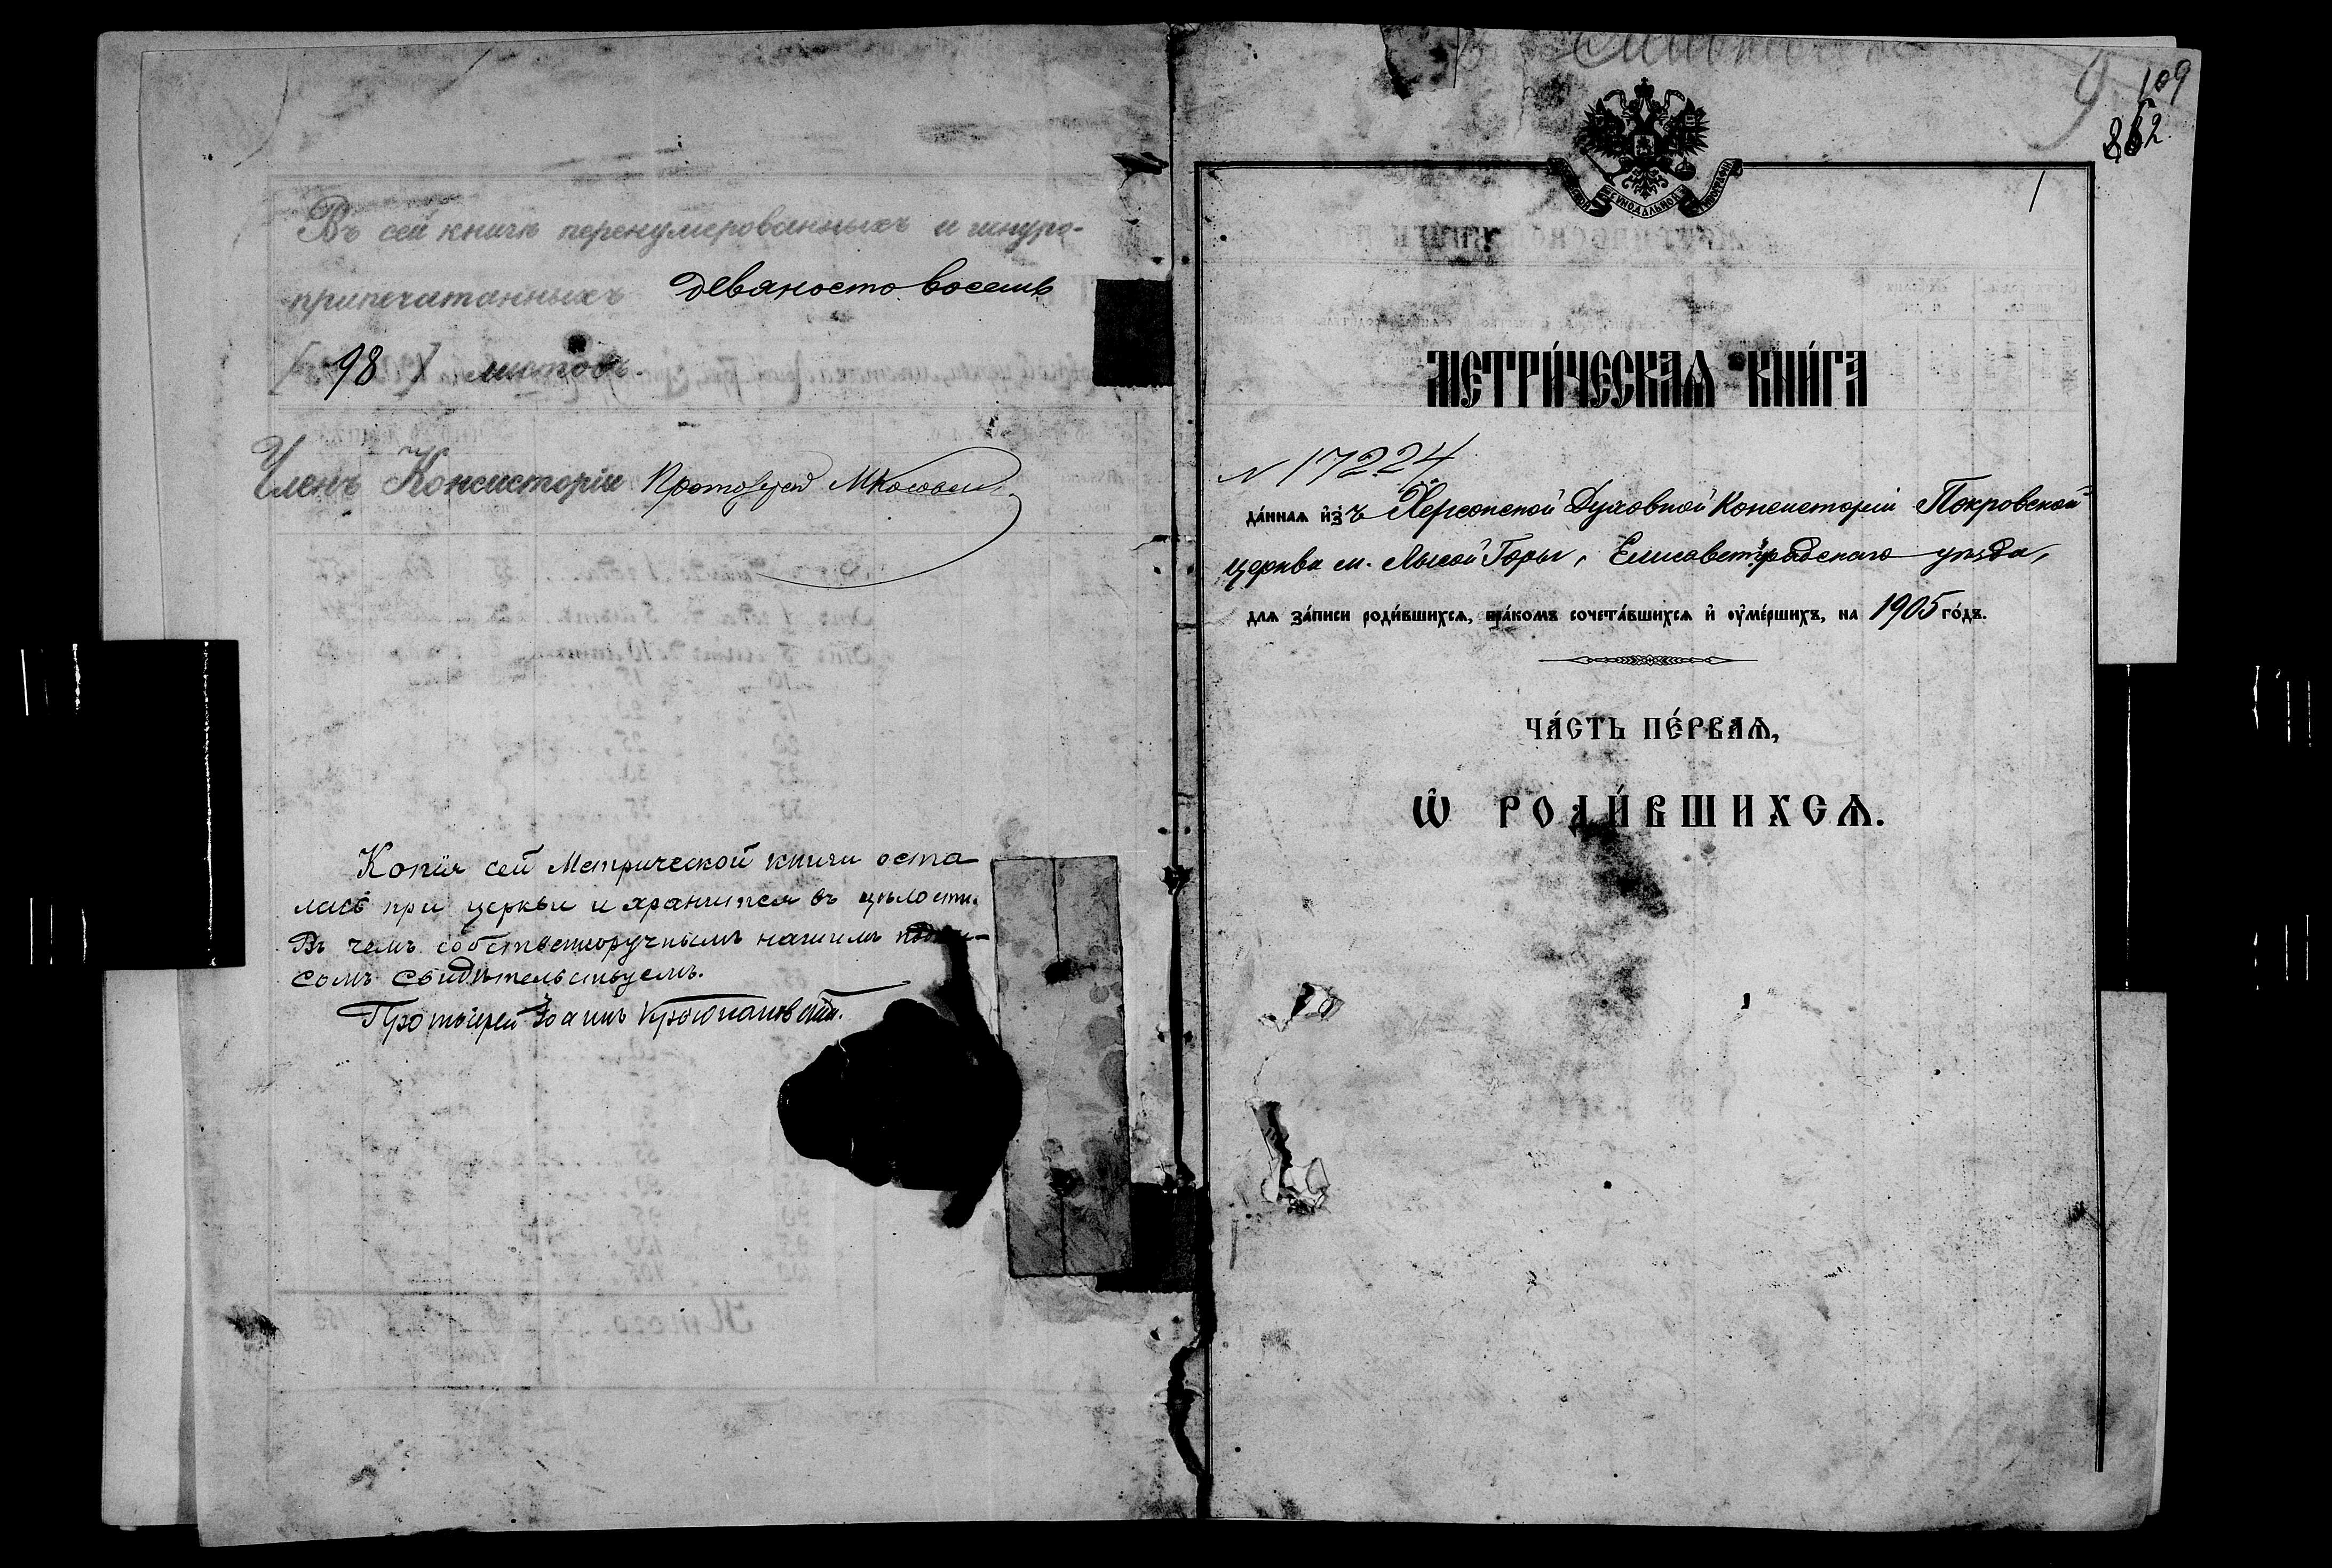 Въ сей книгѣ перенумерованныхъ и шнуро-
припечатанныхъ девяносто восемь
[98] листовъ.
Членъ Консисторіи Протоіерей
Копія сей Метрической книги оста
лась при церкви и хранится въ цѣлости.
Въ чемъ собственноручнымъ нашимъ подпи-
сомъ свидѣтельствуемъ.
Протоіерей Іоаннъ
9
109
862
1
СѴНОДАЛЬНОЙ
МЕТРИ́ЧЕСКАѦ КНИ́ГА
N 17224
да́ннаѧ и҆зъ Херсонской Духовной Консисторіи Покровской
церкви м. Лысой Горы, Елисаветградскаго уѣзда,
длѧ за́писи роди́вшихсѧ, бра́комъ сочета́вшихсѧ и҆ оу҆ме́ршихъ, на 1905 го́дъ.
ЧА́СТЬ ПЕ́РВАѦ,
Ѽ РОДИ́ВШИХСѦ.